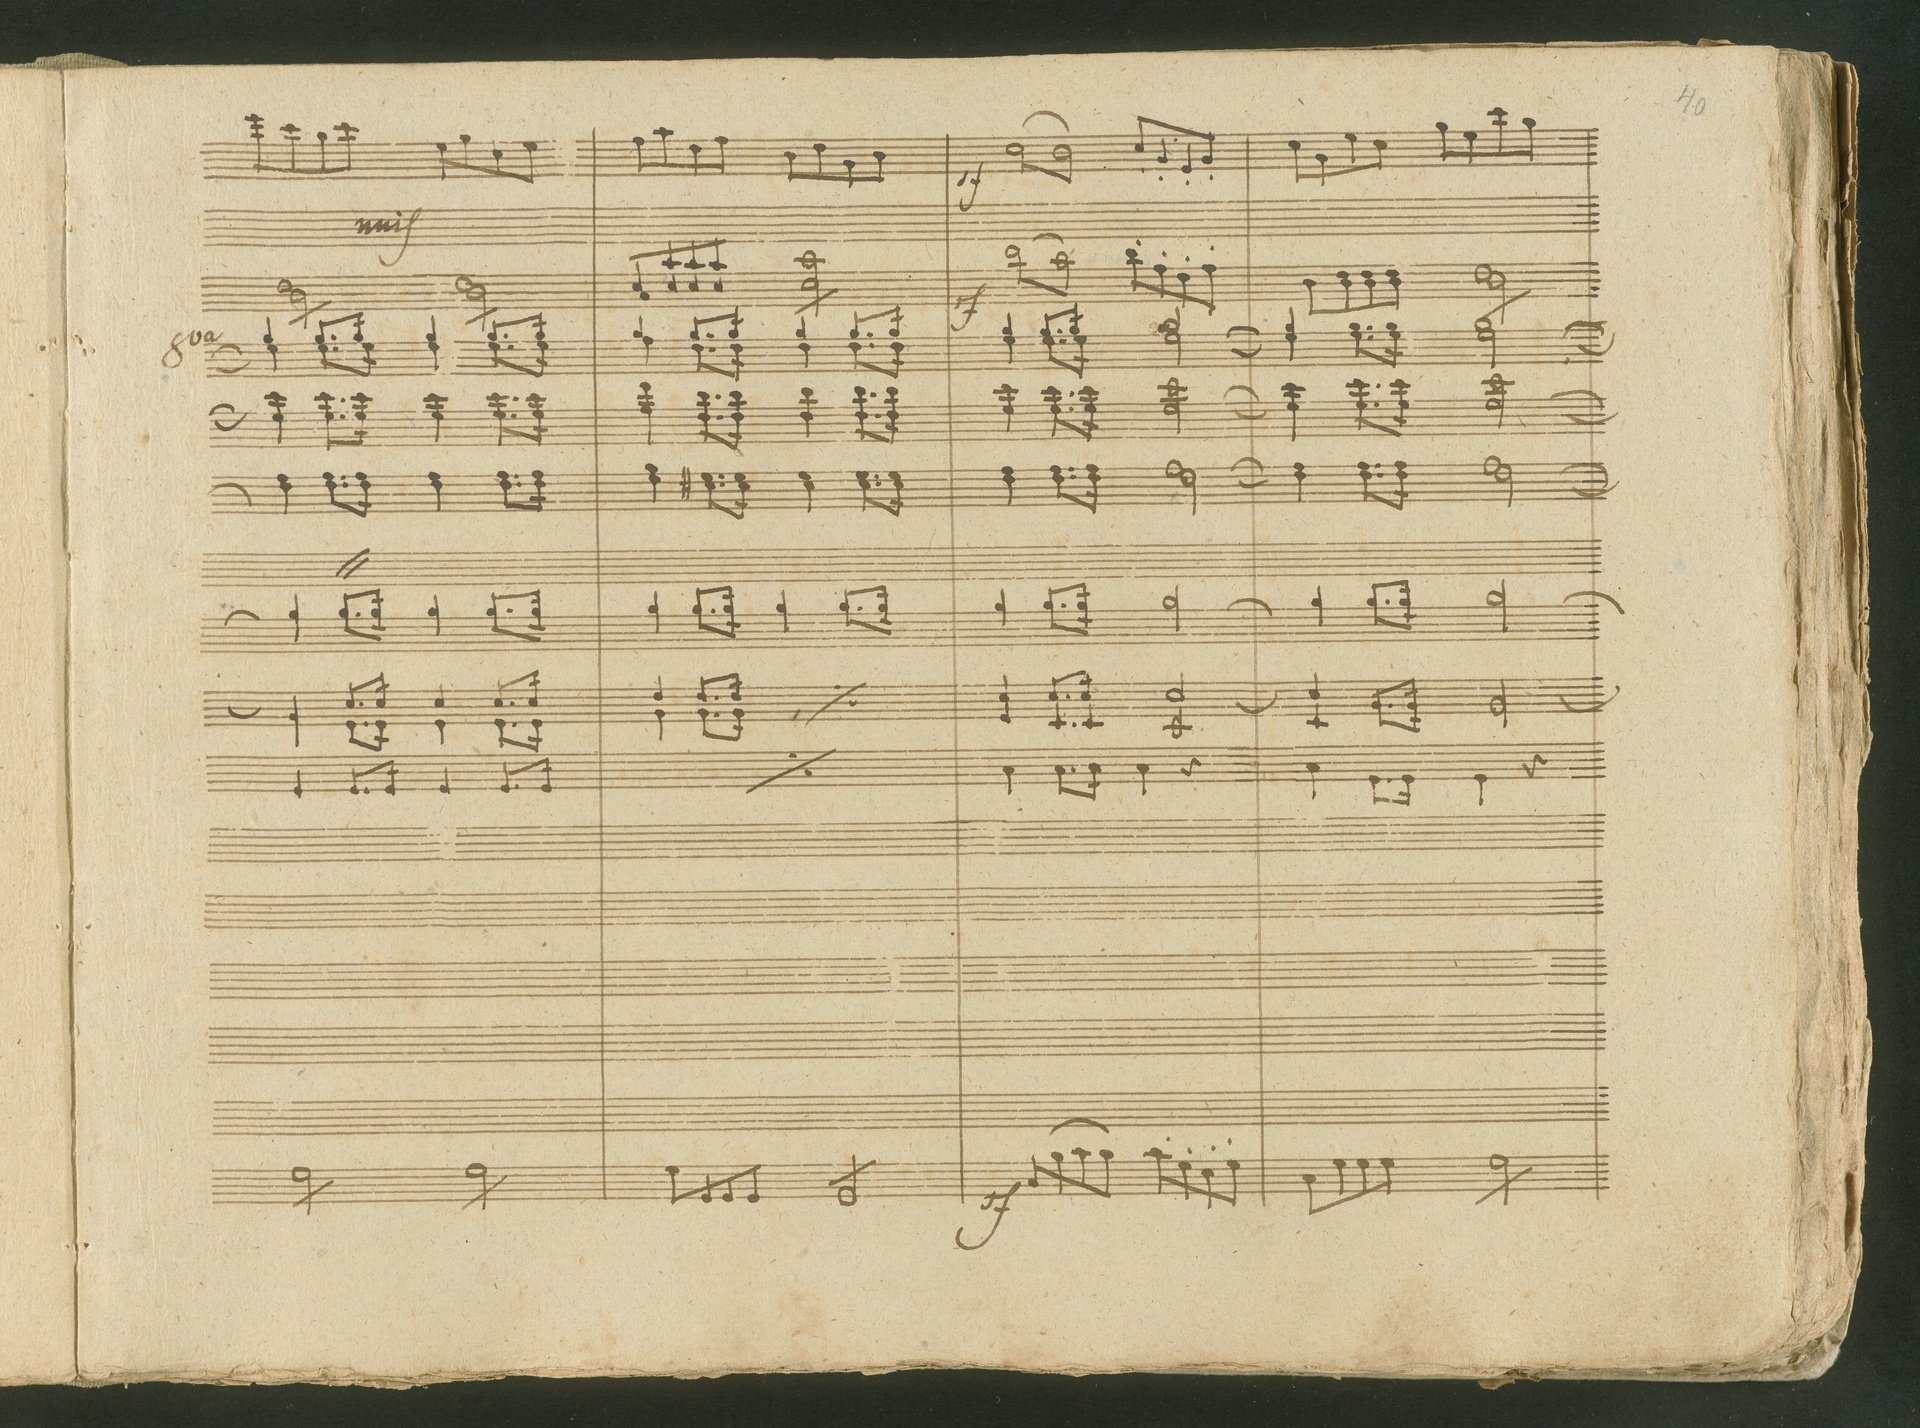 40
sf
unis
sf
8va
sf